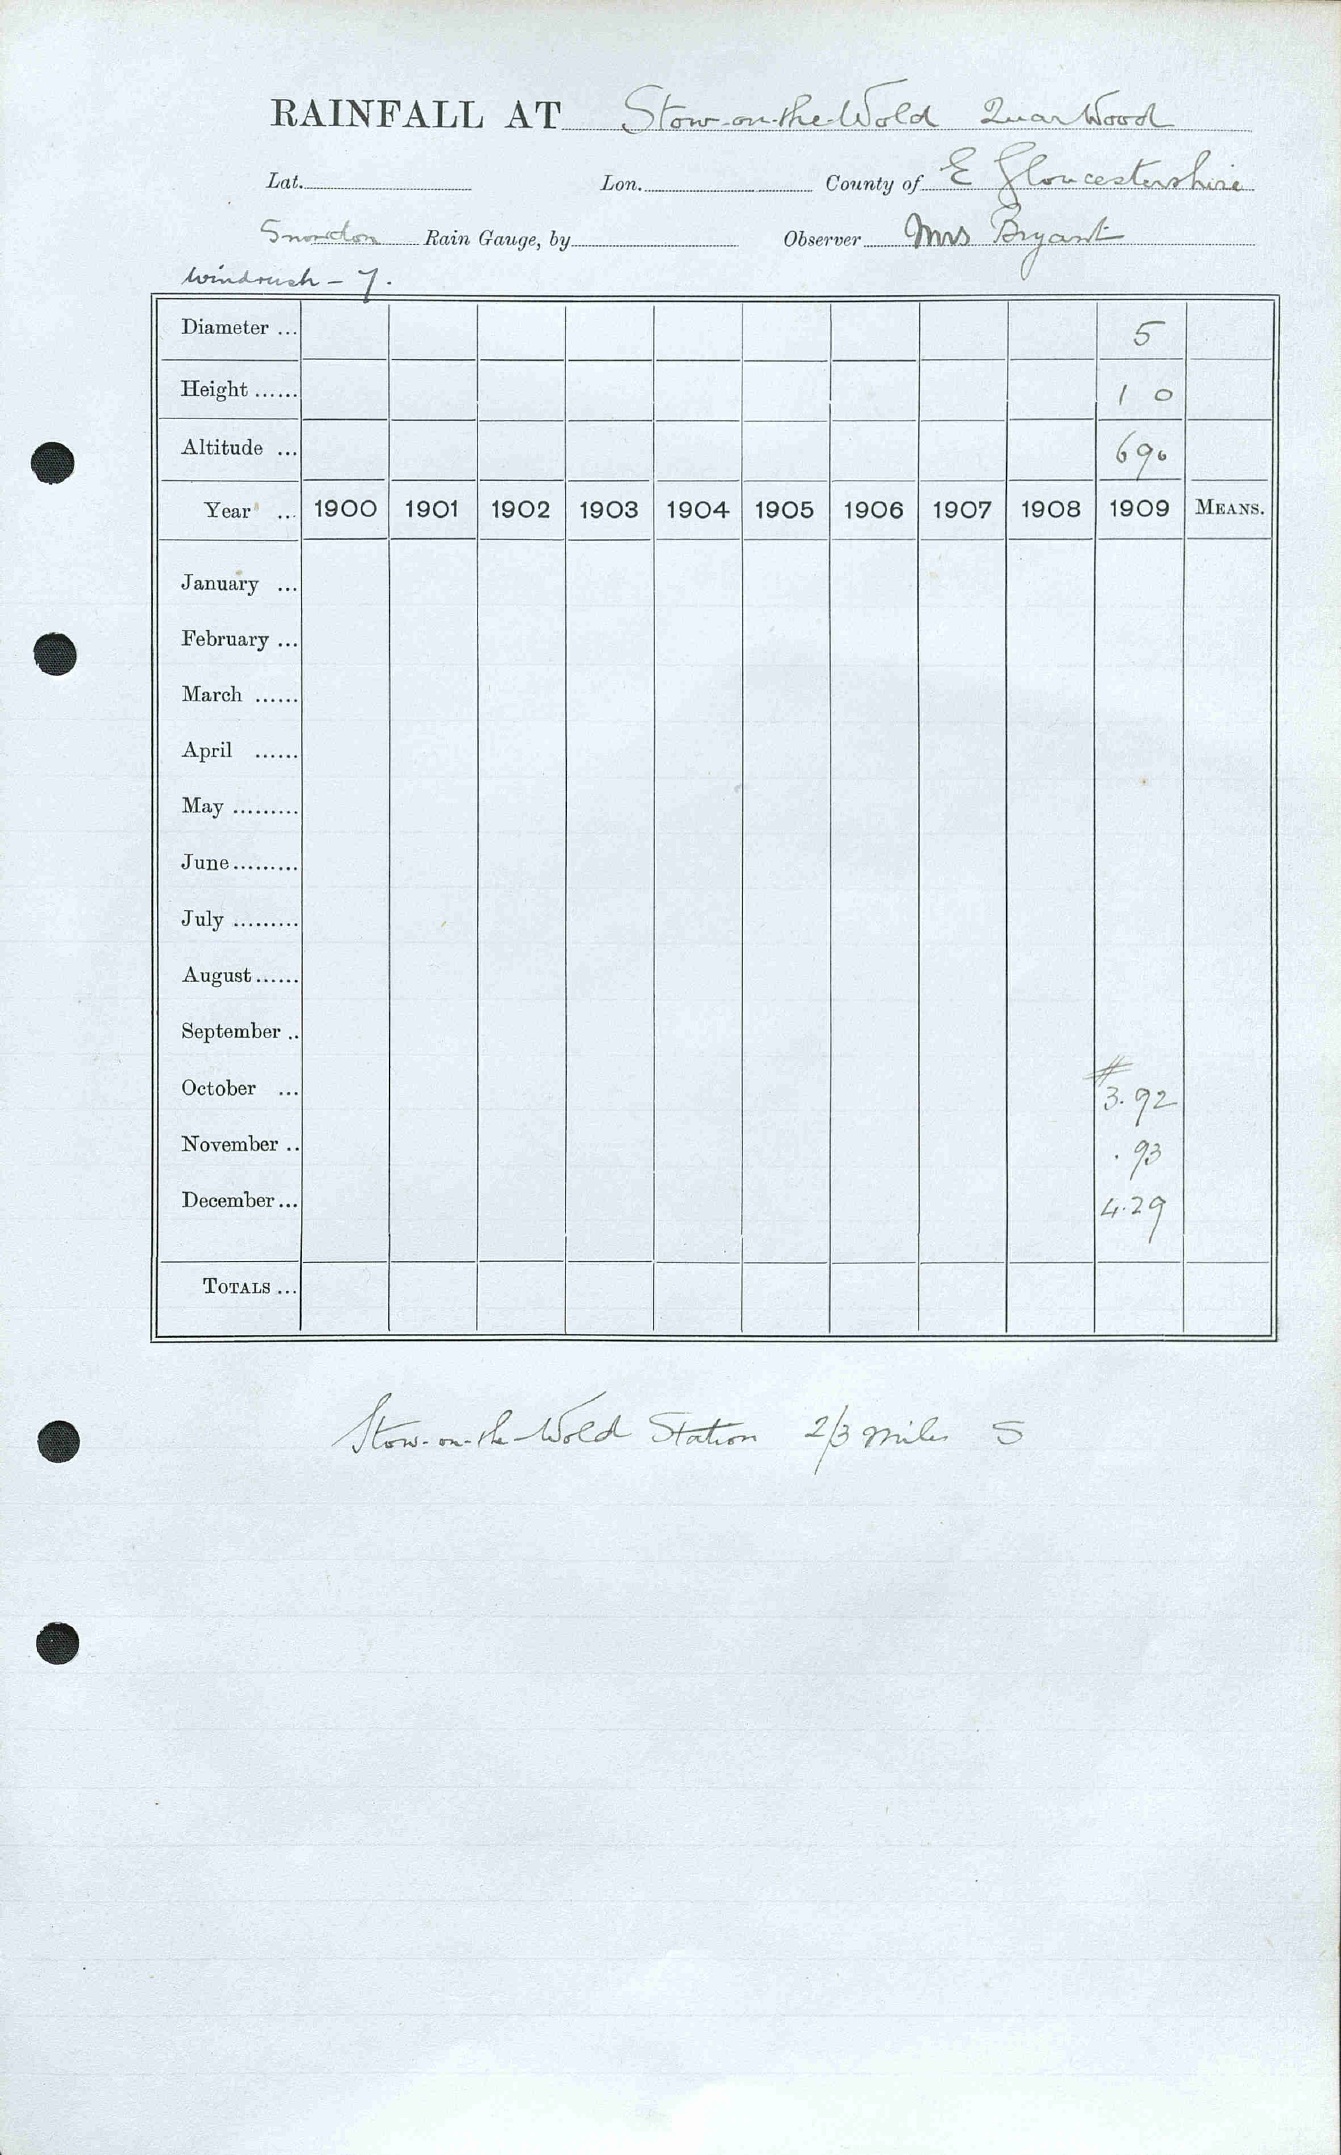 RAINFALL AT Stow-on-the-Wold Quar Wood
Lat. Lon. County of E Gloucestershire
Snowdon Rain Gauge, by Observer Mrs Bryant
Windrush - 7.
Diameter ... 5
Height ...... 1 0
Altitude ... 690
Year ... 1900 1901 1902 1903 1904 1905 1906 1907 1908 1909 MEANS.
January ...
February ...
March ......
April ......
May .........
June.........
July .........
August......
September ..
October ... # 3.92
November .. .93
December... 4.29
TOTALS ...
Stow-on-the-Wold Station 2/3 miles S